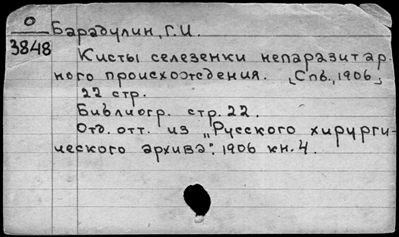 О
3848
Барадулин, Г.И.
Кисты селезенки непаразитар-
ного происхождения. [Спб., 1906]
22 стр.
Библиогр. стр. 22.
Отд. отт. из „Русского хирурги-
ческого архива". 1906 кн. 4.